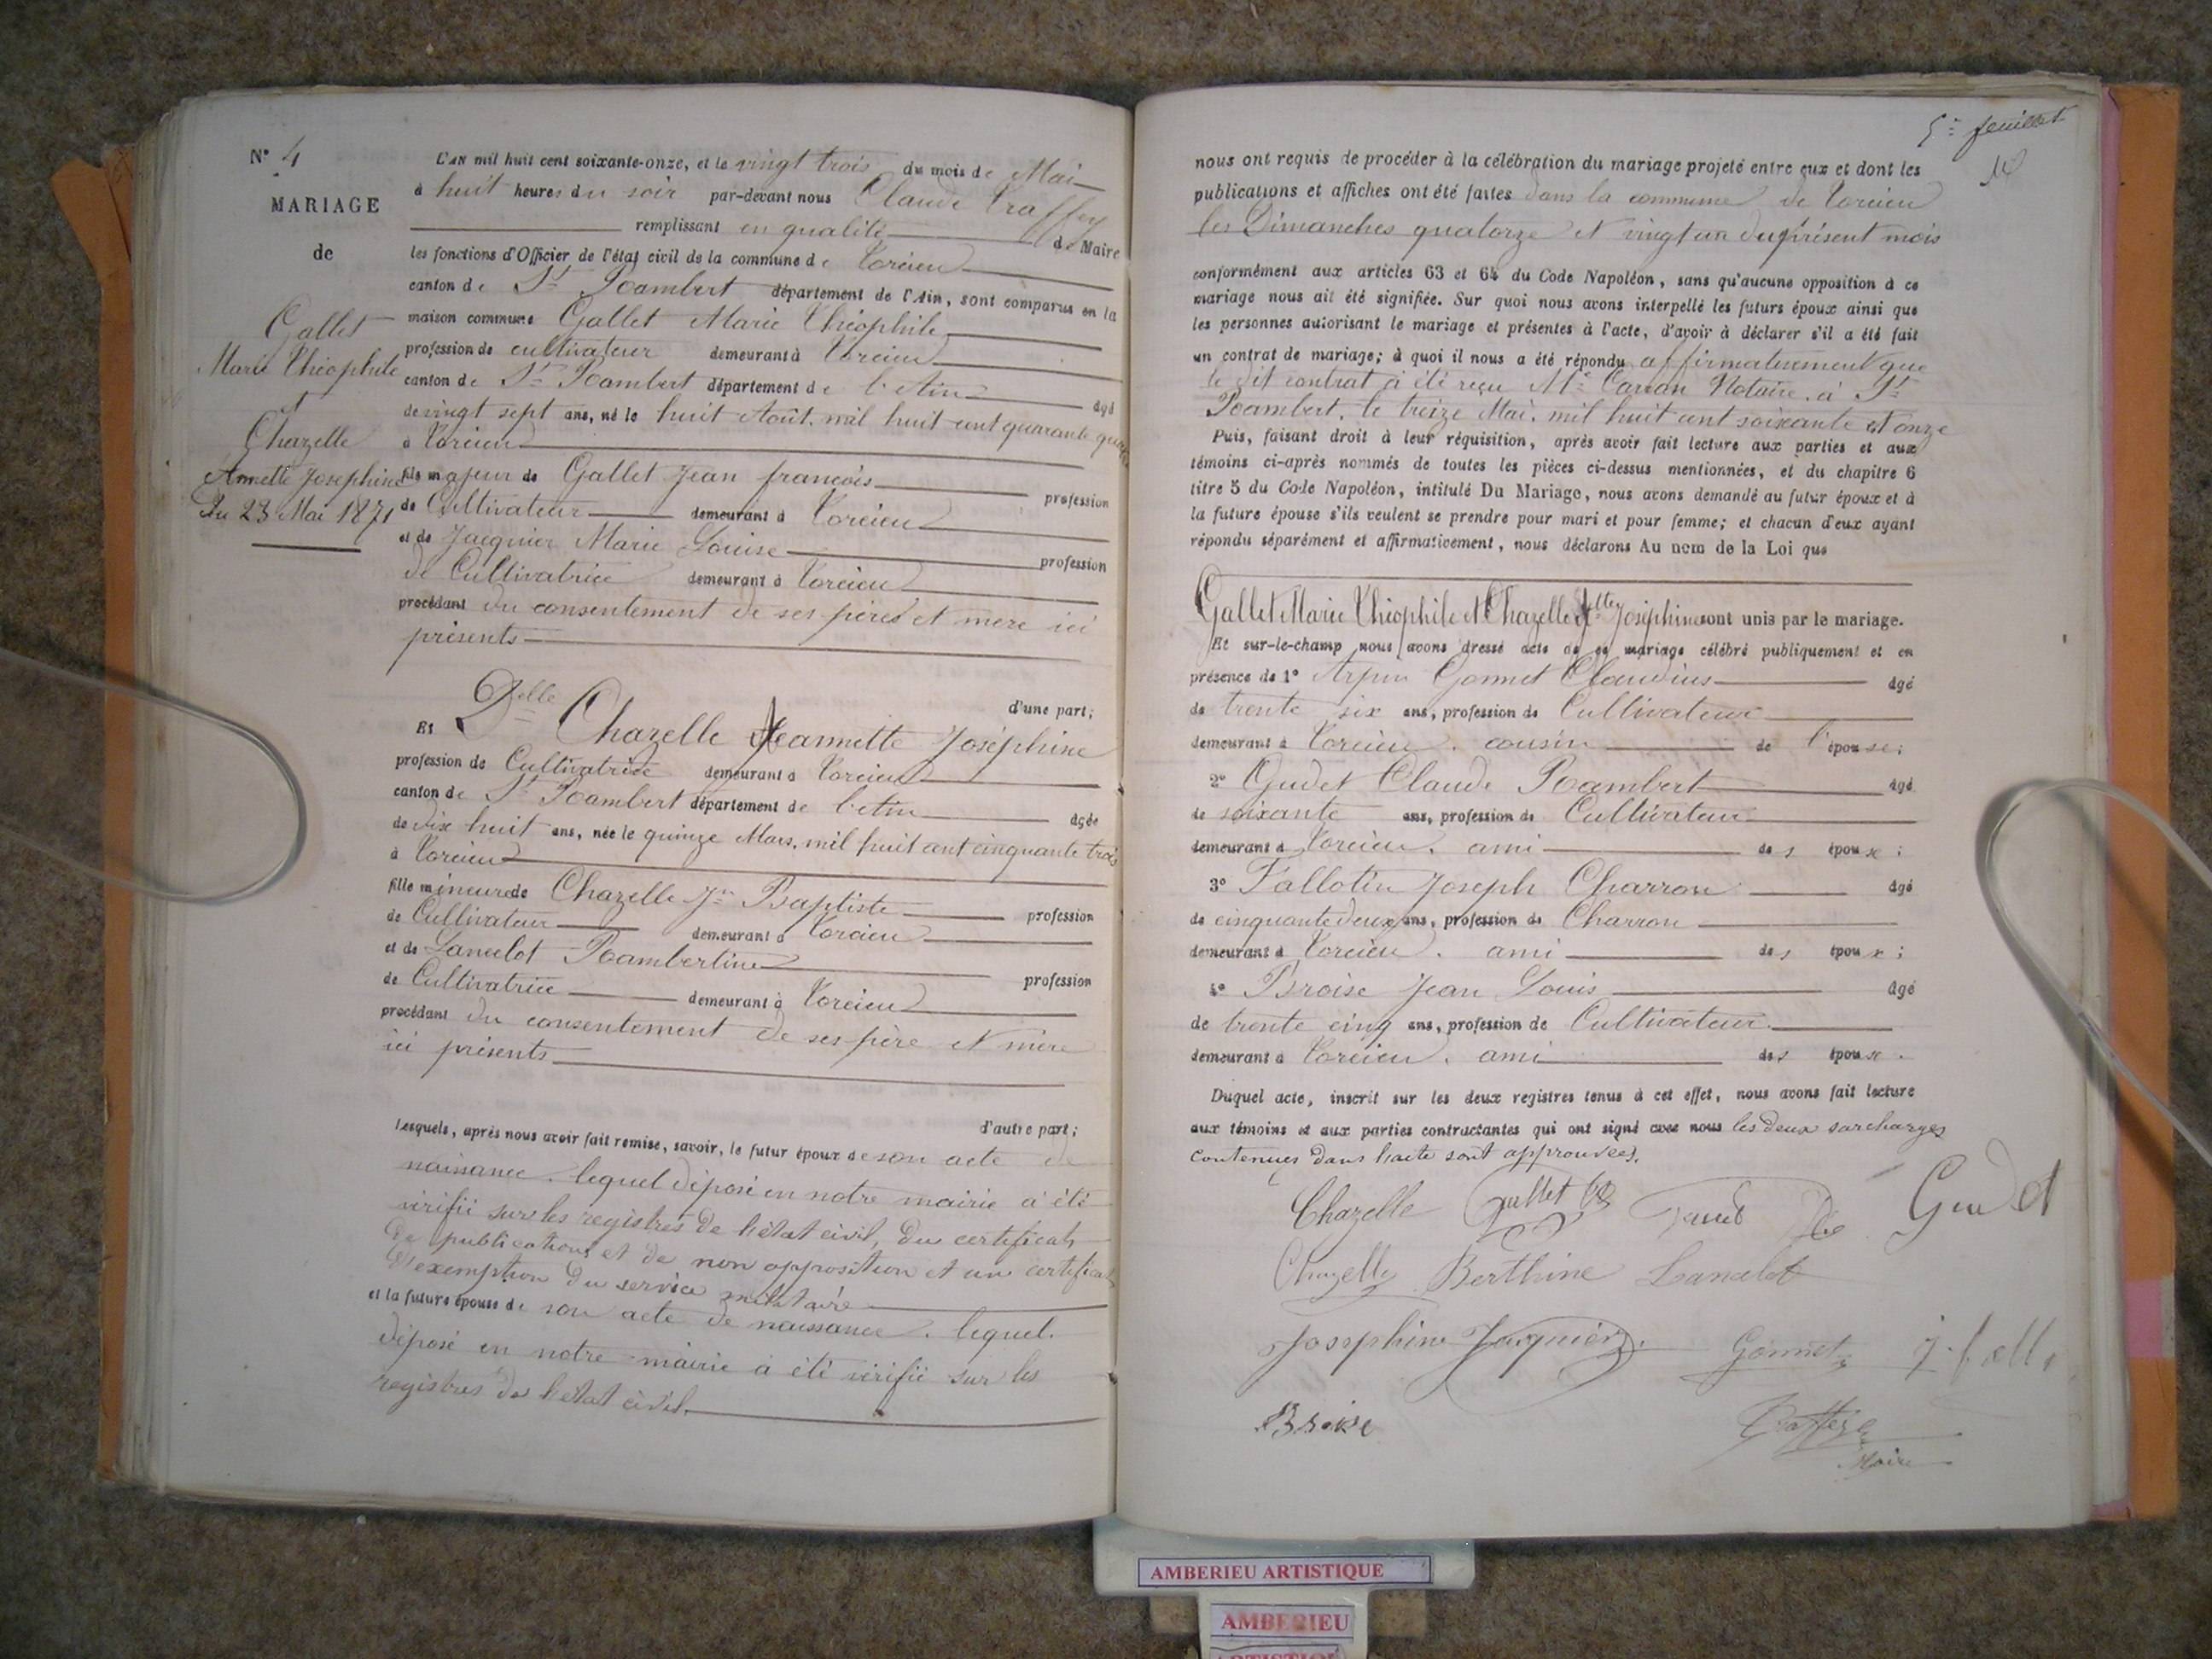 N° 4
MARIAGE
de
Gallet
Marie Théophile
et
Chazelle
Annette Joséphine
Du 23 Mai 1871
L'AN mil huit cent soixante-onze, et le vingt trois du mois de Mai
à huit heures du soir par-devant nous Claude
remplissant en qualité de Maire
les fonctions d'Officier de l'état civil de la commune de Torcieu
canton de St Rambert département de l'Ain, sont comparus en la
maison commune Gallet Marie Théophile
profession de cultivateur demeurant à Torcieu
canton de St Rambert département de l'Ain âgé
de vingt sept ans, né le huit Août, mil huit cent quarante
à Torcieu
fils majeur de Gallet Jean françois profession
de Cultivateur demeurant à Torcieu
et de Jacquier Marie Louise profession
de Cultivatrice demeurant à Torcieu
procédant du consentement de ses pères et mère ici
présents
d'une part;
Et Delle Chazelle Jeannette Joséphine
profession de Cultivatrice demeurant à Torcieu
canton de St Rambert département de l'Ain âgée
de dix huit ans, née le quinze Mars, mil huit cent cinquante trois
à Torcieu
fille mineure de Chazelle Jn Baptiste profession
de Cultivateur demeurant à Torcieu
et de Lancelot Rambertine profession
de Cultivatrice demeurant à Torcieu
procédant du consentement de ses père et mère
ici présents
d'autre part;
Lesquels, après nous avoir fait remise, savoir, le futur époux de son acte de
naissance, lequel déposé en notre mairie a été
vérifié sur les registres de l'état civil, du certificat
de publications et de non opposition et un certificat
d'exemption du service militaire
et la future épouse de son acte de naissance, lequel
déposé en notre mairie a été vérifié sur les
registres de l'état civil.
5e feuillet
nous ont requis de procéder à la célébration du mariage projeté entre eux et dont les
publications et affiches ont été faites dans la commune de Torcieu
les Dimanches quatorze et vingt un du présent mois
conformément aux articles 63 et 64 du Code Napoléon, sans qu'aucune opposition à ce
mariage nous ait été signifiée. Sur quoi nous avons interpellé les futurs époux ainsi que
les personnes autorisant le mariage et présentes à l'acte, d'avoir à déclarer s'il a été fait
un contrat de mariage; à quoi il nous a été répondu affirmativement que
le dit contrat a été reçu Me Notaire, à St
Rambert, le treize Mai, mil huit cent soixante et onze
Puis, faisant droit à leur réquisition, après avoir fait lecture aux parties et aux
témoins ci-après nommés de toutes les pièces ci-dessus mentionnées, et du chapitre 6
titre 5 du Code Napoléon, intitulé Du Mariage, nous avons demandé au futur époux et à
la future épouse s'ils veulent se prendre pour mari et pour femme; et chacun d'eux ayant
répondu séparément et affirmativement, nous déclarons Au nom de la Loi que
Gallet Marie Théophile et Chazelle Joséphine sont unis par le mariage.
Et sur-le-champ nous avons dressé acte de ce mariage célébré publiquement et en
présence de 1° Arpin Gonnet Claudius âgé
de trente six ans, profession de Cultivateur
demeurant à Torcieu, cousin de l'épouse;
2° Gudet Claude Rambert âgé
de soixante ans, profession de Cultivateur
demeurant à Torcieu, ami des époux;
3° Fallotin Joseph Charron âgé
de cinquante deux ans, profession de Charron
demeurant à Torcieu, ami des époux;
4° Broise Jean Louis âgé
de trente cinq ans, profession de Cultivateur
demeurant à Torcieu, ami des époux.
Duquel acte, inscrit sur les deux registres tenus à cet effet, nous avons fait lecture
aux témoins et aux parties contractantes qui ont signé avec nous les deux surcharges
contenues dans l'acte sont approuvées.
Chazelle Gallet Gudet
Chazelle Berthine Lancelot
Josephine Jacquier Gonnet
Broise
Maire
AMBERIEU ARTISTIQUE
AMBERIEU
ARTISTIQUE